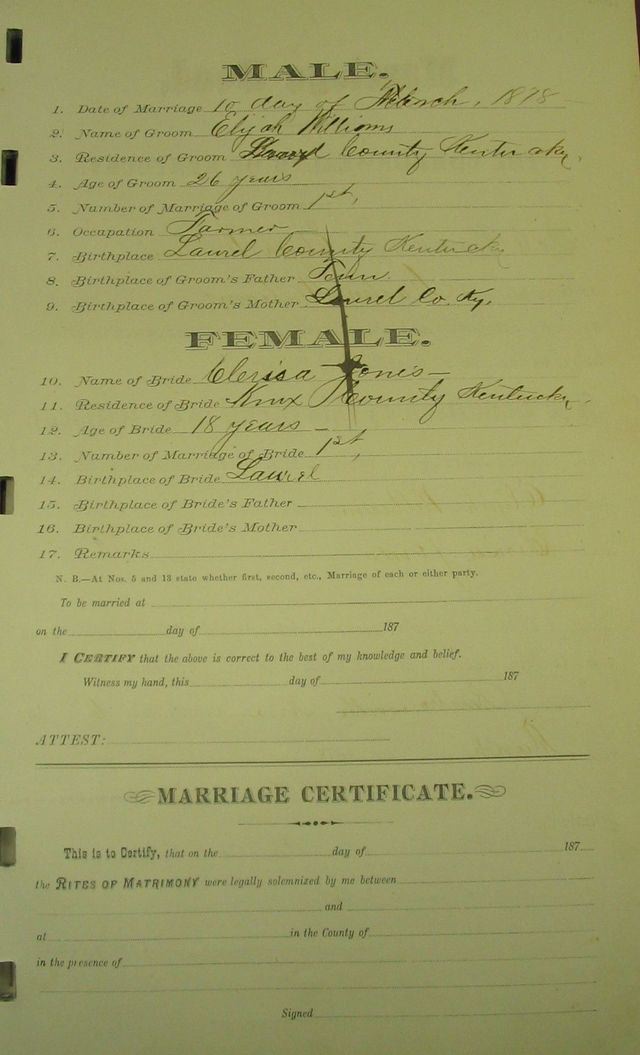 MALE.
1. Date of Marriage 10 day of March, 1878
2. Name of Groom Elijah Williams
3. Residence of Groom County Kentucky,
4. Age of Groom 26 years
5. Number of Marriage of Groom 1st,
6. Occupation Farmer
7. Birthplace Laurel County Kentucky
8. Birthplace of Groom's Father Tenn
9. Birthplace of Groom's Mother Laurel Co. Ky.
FEMALE.
10. Name of Bride Clerisa Jones
11. Residence of Bride Knox County Kentucky
12. Age of Bride 18 years
13. Number of Marriage of Bride 1st,
14. Birthplace of Bride Laurel
15. Birthplace of Bride's Father
16. Birthplace of Bride's Mother
17. Remarks
N. B.—At Nos. 5 and 13 state whether first, second, etc., Marriage of each or either party.
To be married at
on the day of 187
I CERTIFY that the above is correct to the best of my knowledge and belief.
Witness my hand, this day of 187
ATTEST:
MARRIAGE CERTIFICATE.
This is to Certify, that on the day of 187
the RITES OF MATRIMONY were legally solemnized by me between
and
at in the County of
in the presence of
Signed